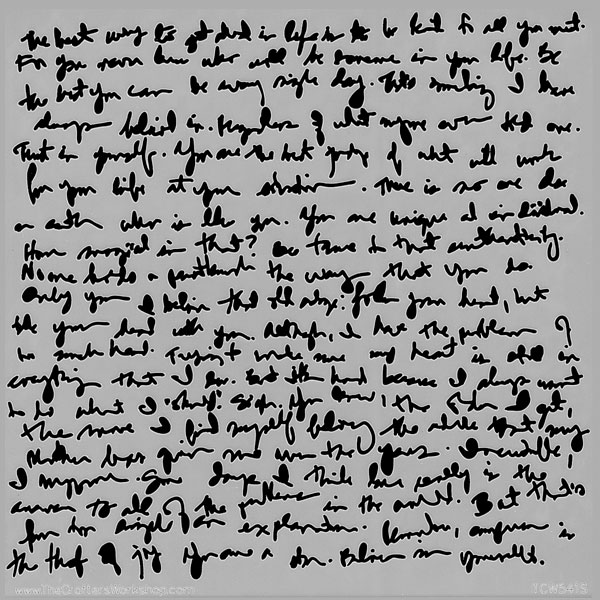 The best way to get ahead in life is to be kind to all you meet.
For you never know who will be someone in your life. Be
the best you can be every single day. That's something I have
always believed in. Regardless of what anyone ever told me.
Trust in yourself. You are the best judge of what will work
for your life at your situation. There is no one else
on earth who is like you. You are unique and individual.
How magical is that? Be true to that authenticity.
No one holds a the way that you do.
Only you I believe that old adage: follow your heart, but
take your head with you. Although, I have the problem of
too much head. Trying to make sure my heart is still in
everything that I do. But it's hard because I always want
to do what I "should". Sigh. You know, the older I get,
the more I find myself following the advice that my
Mother has given me over the years. Inevitable,
I suppose. Some days I think love really is the
answer to all of the problems in the world. But that is
far too simple an explanation. Remember, compassion is
the thief of joy. You are a star. Believe in yourself.
www.TheCraftersWorkshop.com
TCW5415